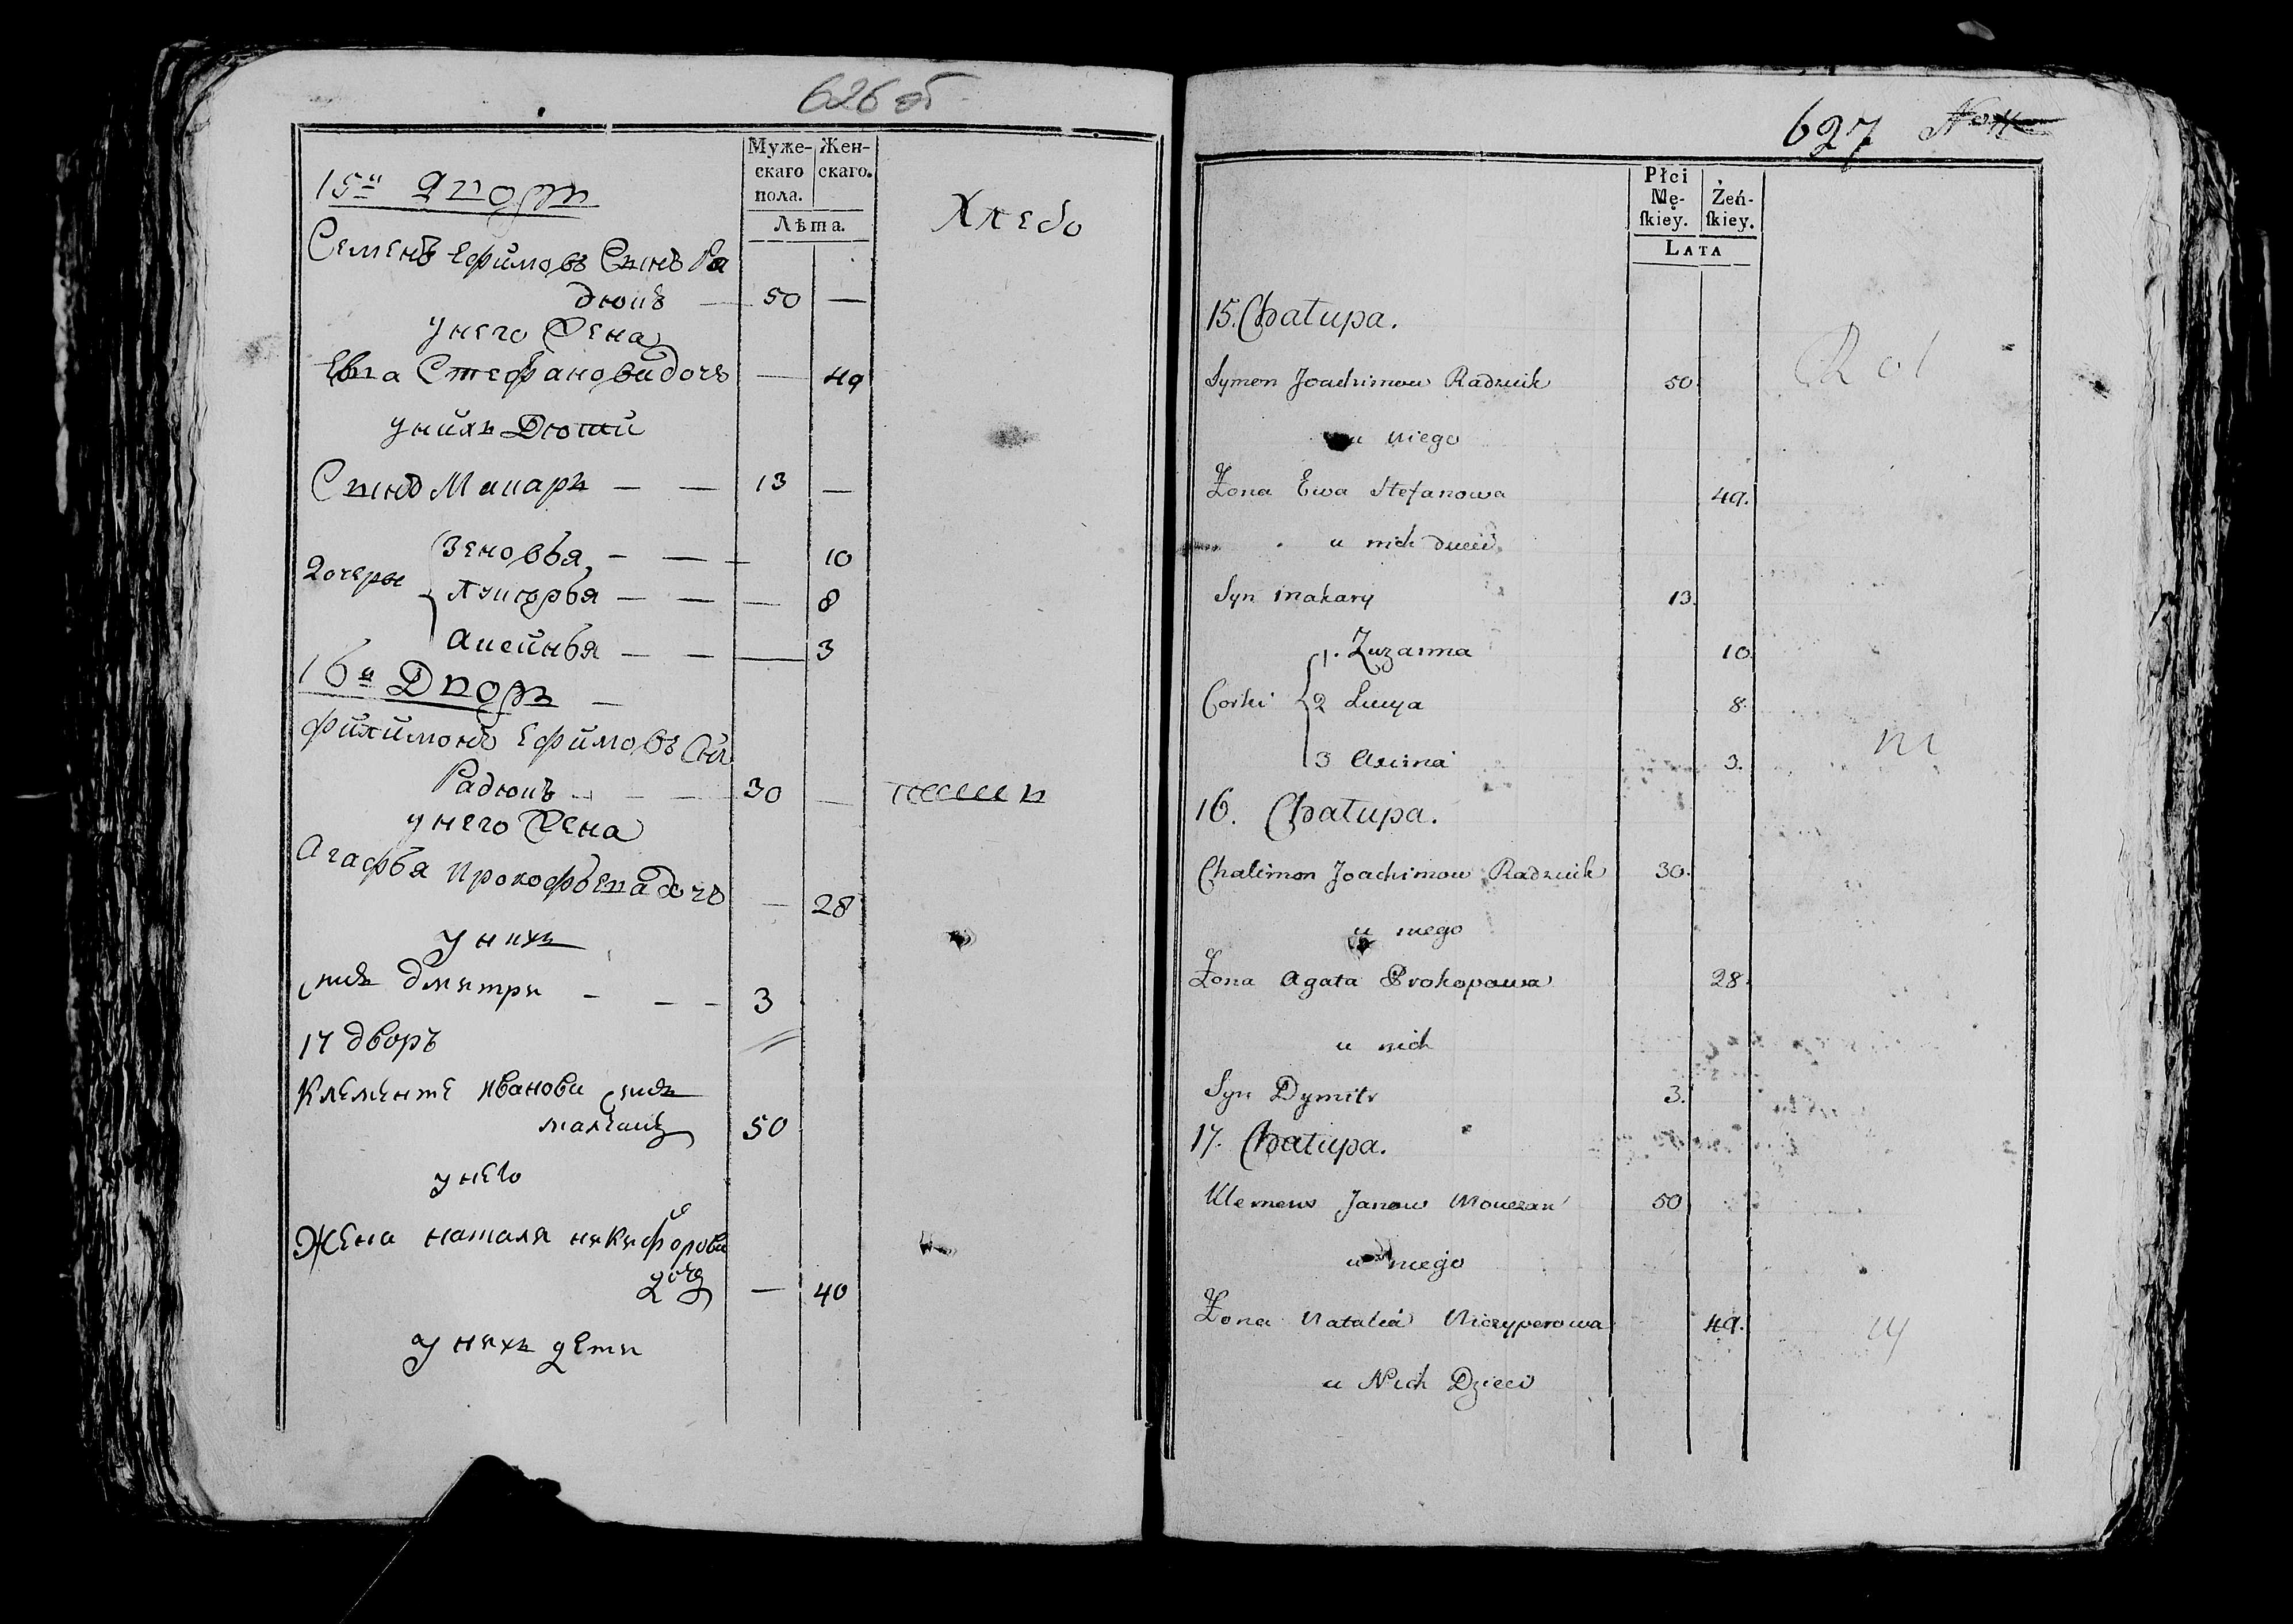 626 об
Муже-
скаго
пола.
Жен-
скаго.
Лѣта.
15й Двор
Хлебо
Семенъ Ефимовъ Сынъ Ра
дюкъ — 50 —
у него Жена
Ева Стефанова дочь — 49
у нихъ Дюти
Сынъ Макаръ — — 13 —
Дочеры
Зеновья — — — 10
Лукорья — — — 8
3
16й Дворъ —
Филимонъ Ефимовъ Сын
Радюкъ — — — 30 —
у него Жена
Агафья Прокофьева дочь — 28
у нихъ
сынъ Дмитри — — — 3
17 дворъ
Клементе Иванови сынъ
50
у него
Жена наталя никифорови
дочь — 40
у нихъ дети
627
Płci
Mę-
ſkiey.
Żeń-
ſkiey.
LATA
15. Chatupa.
Symon Joachimow Radziuk 50.
u niego
Żona Ewa Stefanowa 49.
u nich dzieci
Syn Makary 13.
Corki
1. Zuzanna 10
2 Lucya 8.
3 3.
16. Chatupa.
Chalimon Joachimow Radziuk 30.
u niego
Żona Agata Prokopowa 28.
u nich
Syn Dymitr 3.
17. Chatupa.
Klemens Janow 50
u niego
Żona Natalia Niczyperowa 49.
u Nich Dzieci